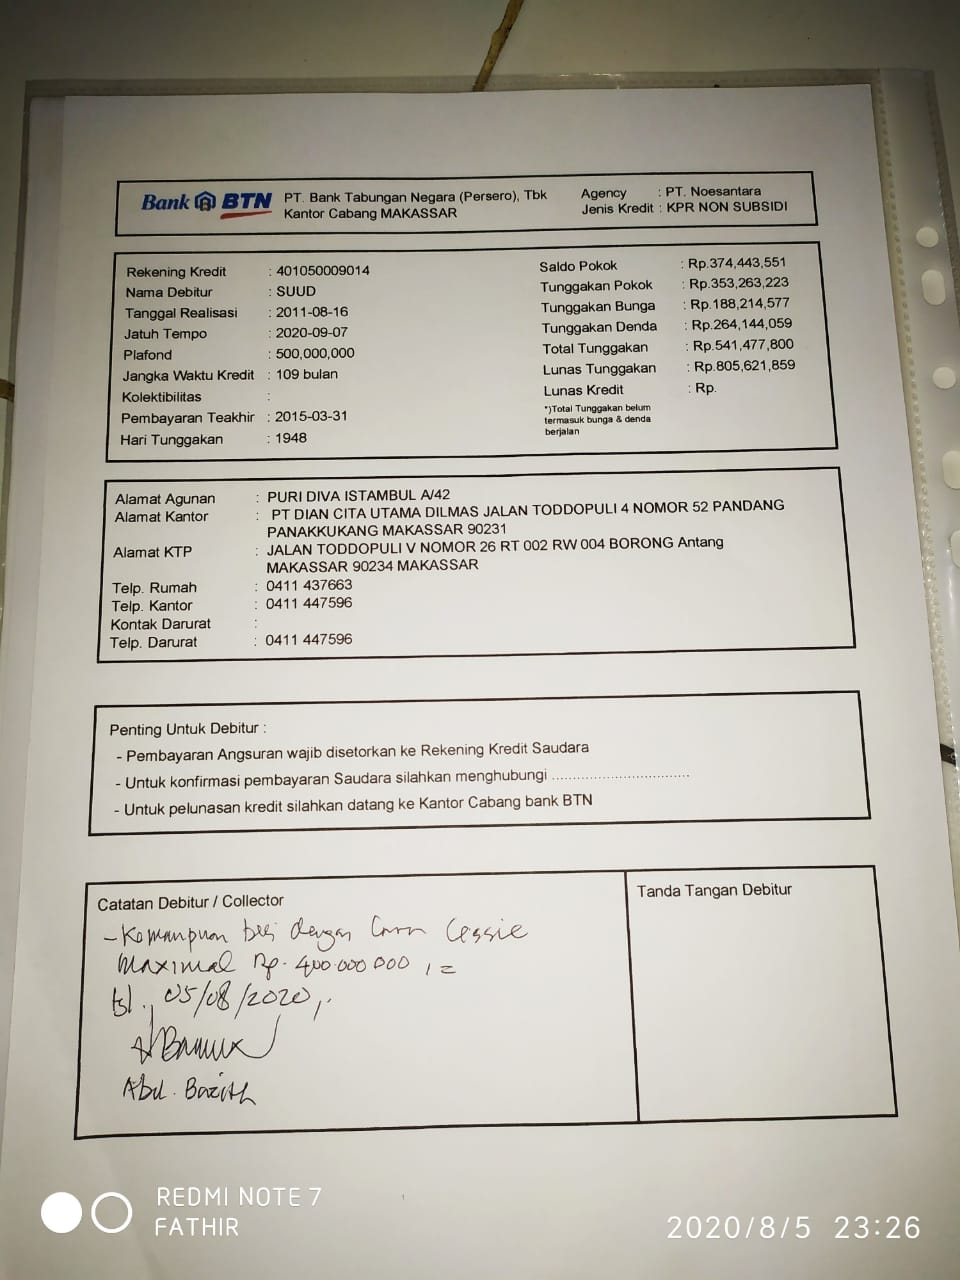 Bank BTN PT. Bank Tabungan Negara (Persero), Tbk
Kantor Cabang MAKASSAR
Agency : PT. Noesantara
Jenis Kredit : KPR NON SUBSIDI
Rekening Kredit : 401050009014
Nama Debitur : SUUD
Tanggal Realisasi : 2011-08-16
Jatuh Tempo : 2020-09-07
Plafond : 500,000,000
Jangka Waktu Kredit : 109 bulan
Kolektibilitas :
Pembayaran Teakhir : 2015-03-31
Hari Tunggakan : 1948
Saldo Pokok : Rp.374,443,551
Tunggakan Pokok : Rp.353,263,223
Tunggakan Bunga : Rp.188,214,577
Tunggakan Denda : Rp.264,144,059
Total Tunggakan : Rp.541,477,800
Lunas Tunggakan : Rp.805,621,859
Lunas Kredit : Rp.
*)Total Tunggakan belum
termasuk bunga & denda
berjalan
Alamat Agunan : PURI DIVA ISTAMBUL A/42
Alamat Kantor : PT DIAN CITA UTAMA DILMAS JALAN TODDOPULI 4 NOMOR 52 PANDANG
PANAKKUKANG MAKASSAR 90231
Alamat KTP : JALAN TODDOPULI V NOMOR 26 RT 002 RW 004 BORONG Antang
MAKASSAR 90234 MAKASSAR
Telp. Rumah : 0411 437663
Telp. Kantor : 0411 447596
Kontak Darurat :
Telp. Darurat : 0411 447596
Penting Untuk Debitur :
- Pembayaran Angsuran wajib disetorkan ke Rekening Kredit Saudara
- Untuk konfirmasi pembayaran Saudara silahkan menghubungi ..................................
- Untuk pelunasan kredit silahkan datang ke Kantor Cabang bank BTN
Catatan Debitur / Collector
- Kemampuan beli dengan Cara Cessie
Maximal Rp. 400.000.000 , =
tgl., 05/08/2020,.
Abd. Basith
Tanda Tangan Debitur
REDMI NOTE 7
FATHIR
2020/8/5 23:26